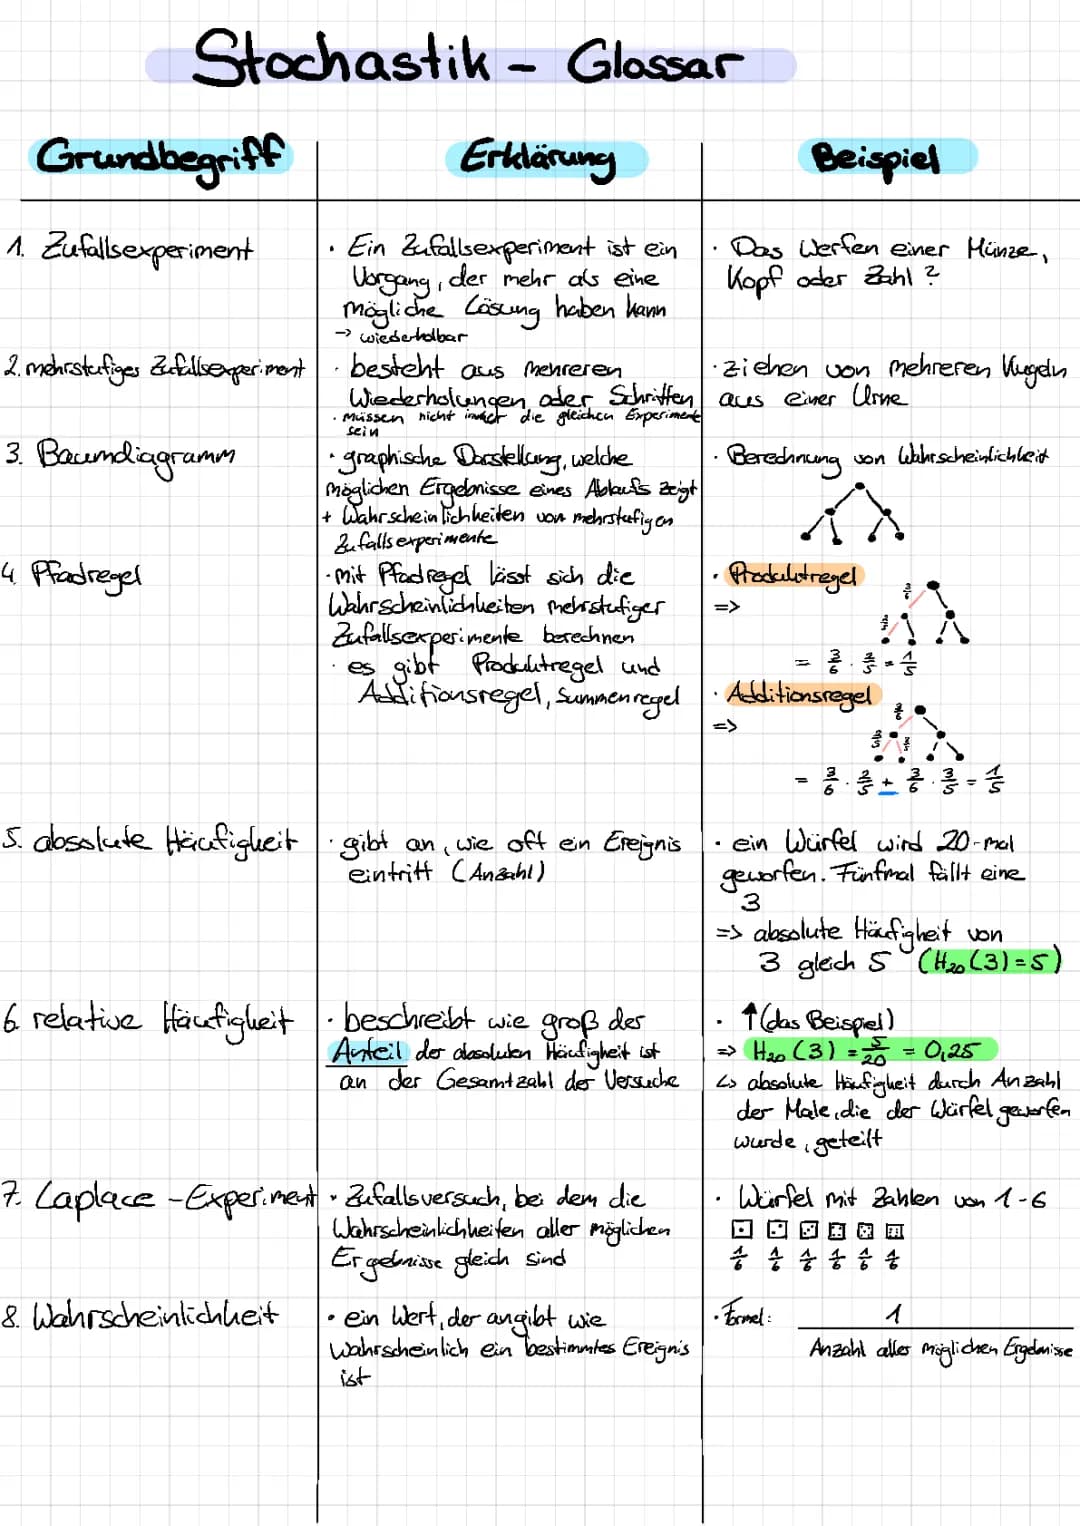 Stochastik - Glossar
Grundbegriff
Erklärung
Beispiel
1. Zufallsexperiment
· Ein Zufallsexperiment ist ein
Vorgang, der mehr als eine
mögliche Lösung haben kann
-> wiederholbar
· Das Werfen einer Münze,
Kopf oder Zahl ?
2. mehrstufiges Zufallsexperiment
· besteht aus mehreren
Wiederholungen oder Schritten
· müssen nicht immer die gleichen Experimente
sein
· ziehen von mehreren Kugeln
aus einer Urne
3. Baumdiagramm
· graphische Darstellung, welche
möglichen Ergebnisse eines Ablaufs zeigt
+ Wahrscheinlichkeiten von mehrstufigen
Zufallsexperimente
· Berechnung von Wahrscheinlichkeit
4. Pfadregel
· mit Pfadregel lässt sich die
Wahrscheinlichkeiten mehrstufiger
Zufallsexperimente berechnen
· es gibt Produktregel und
Additionsregel, Summenregel
· Produktregel
=>
3/6
2/5
= 3/6 · 2/5 = 1/5
· Additionsregel
=>
3/6
2/5 3/5
= 3/6 · 2/5 + 3/6 · 3/5 = 1/5
5. absolute Häufigkeit
· gibt an, wie oft ein Ereignis
eintritt (Anzahl)
· ein Würfel wird 20-mal
geworfen. Fünfmal fällt eine
3
=> absolute Häufigkeit von
3 gleich 5 (H20 (3) = 5)
6. relative Häufigkeit
· beschreibt wie groß der
Anteil der absoluten Häufigkeit ist
an der Gesamtzahl der Versuche
· ↑ (das Beispiel)
=> H20 (3) = 5/20 = 0,25
↳ absolute Häufigkeit durch Anzahl
der Male, die der Würfel geworfen
wurde, geteilt
7. Laplace - Experiment
· Zufallsversuch, bei dem die
Wahrscheinlichkeiten aller möglichen
Ergebnisse gleich sind
· Würfel mit Zahlen von 1-6
1/6 1/6 1/6 1/6 1/6 1/6
8. Wahrscheinlichkeit
· ein Wert, der angibt wie
wahrscheinlich ein bestimmtes Ereignis
ist
· Formel:
1
Anzahl aller möglichen Ergebnisse